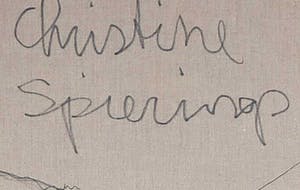 Christine
Spierings